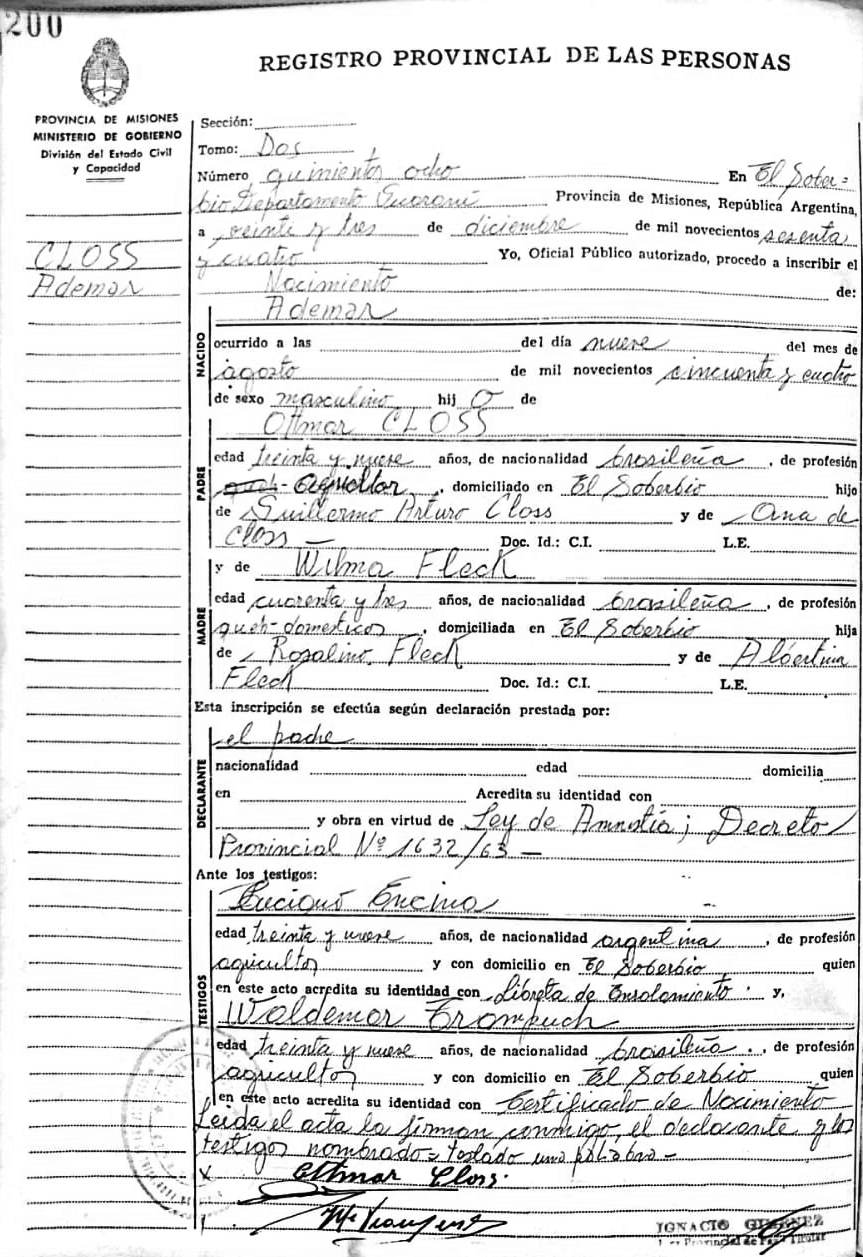 200
REGISTRO PROVINCIAL DE LAS PERSONAS
PROVINCIA DE MISIONES
MINISTERIO DE GOBIERNO
División del Estado Civil
y Capacidad
CLOSS
Ademar
Sección:
Tomo: Dos
Número quinientos ocho En El Sober=
bio Departamento Guaraní Provincia de Misiones, República Argentina,
a veinte y tres de diciembre de mil novecientos sesenta
y cuatro Yo, Oficial Público autorizado, procedo a inscribir el
Nacimiento de:
NACIDO
Ademar
ocurrido a las del día nueve del mes de
agosto de mil novecientos cincuenta y cuatro
de sexo masculino hij o de
Ottmar CLOSS
PADRE
edad treinta y nueve años, de nacionalidad brasileña, de profesión
agricultor, domiciliado en El Soberbio hijo
de Guillermo Arturo Closs y de Ana de
Closs — Doc. Id.: C.I. L.E.
y de Wilma Fleck
MADRE
edad cuarenta y tres años, de nacionalidad brasileña, de profesión
queh-domesticos, domiciliada en El Soberbio hija
de Rosalino Fleck y de Albertina
Fleck Doc. Id.: C.I. L.E.
Esta inscripción se efectúa según declaración prestada por:
el padre
DECLARANTE
nacionalidad edad domicilia
en Acredita su identidad con
y obra en virtud de Ley de Amnistía; Decreto
Provincial Nº 1632/63 —
Ante los testigos:
Encina
TESTIGOS
edad treinta y nueve años, de nacionalidad argentina, de profesión
agricultor y con domicilio en El Soberbio quien
en este acto acredita su identidad con Libreta de Enrolamiento. y,
Waldemar
edad treinta y nueve años, de nacionalidad brasileña., de profesión
agricultor y con domicilio en El Soberbio quien
en este acto acredita su identidad con Certificado de Nacimiento
Leída el acta la firman conmigo, el declarante y los
testigos nombrado= testado una palabra —
x Ottmar Closs.
IGNACIO GIMENEZ